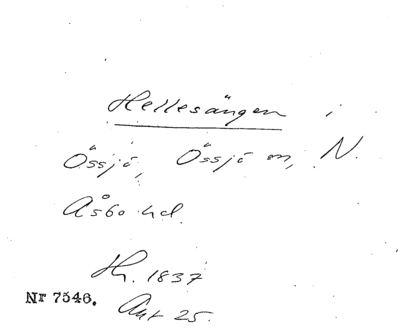 Hellesängen i
Össjö, Össjö sn, N.
Åsbo hd.
Hr. 1837
Nr 7546. Akt 25.